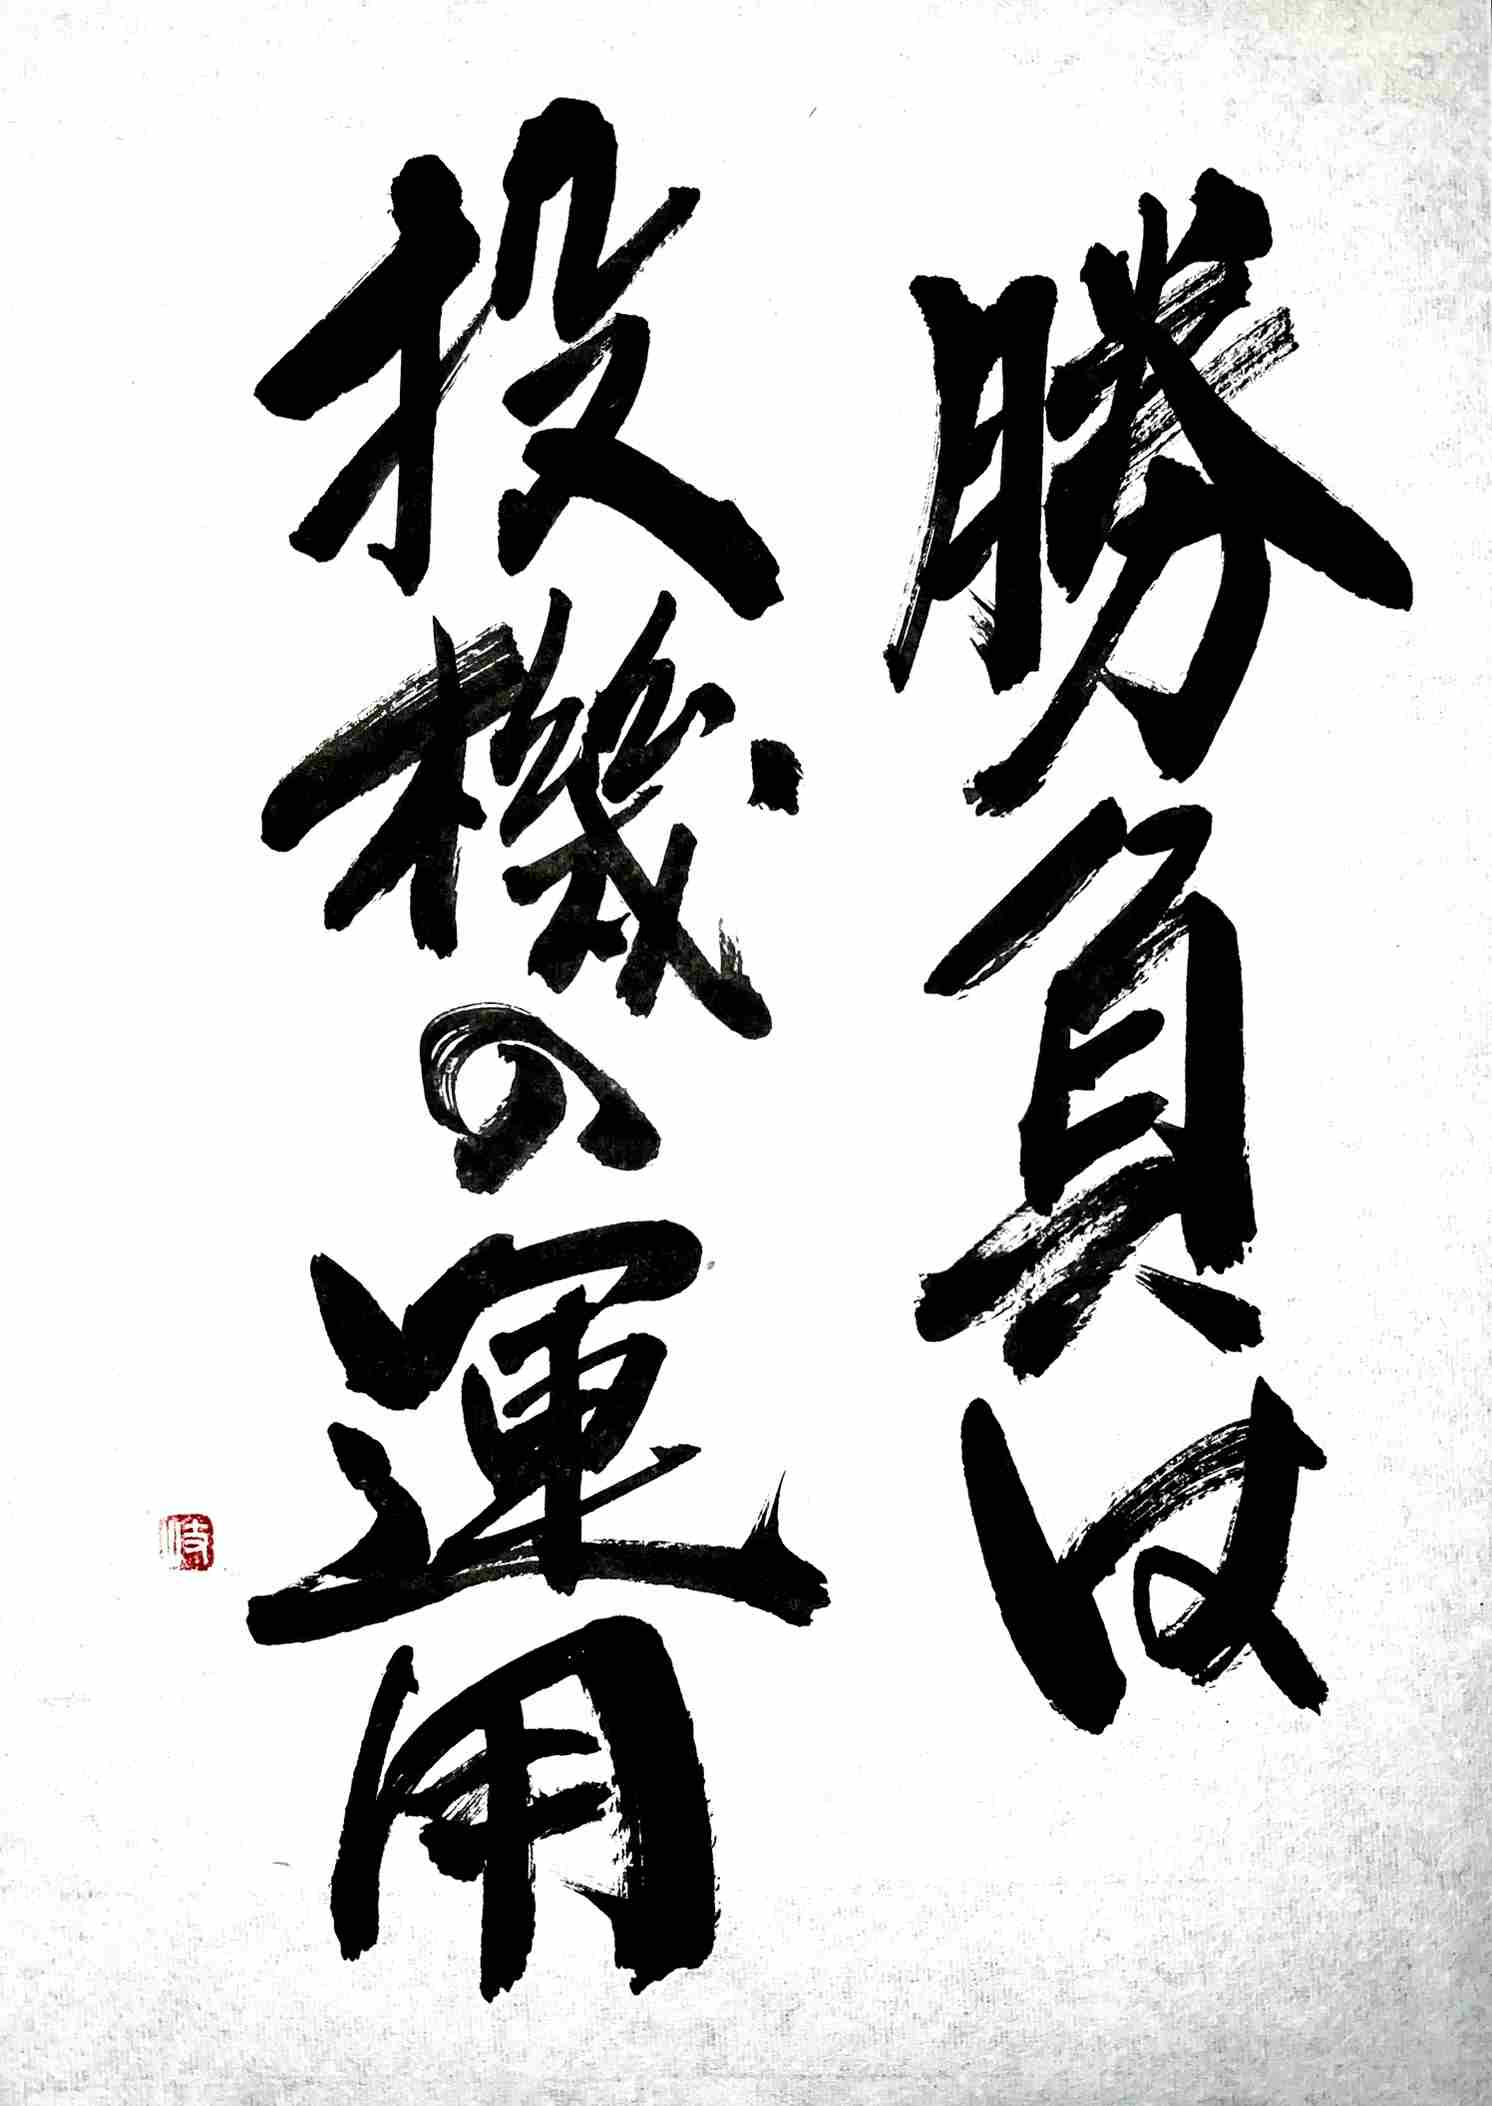 勝負は
投機の運用